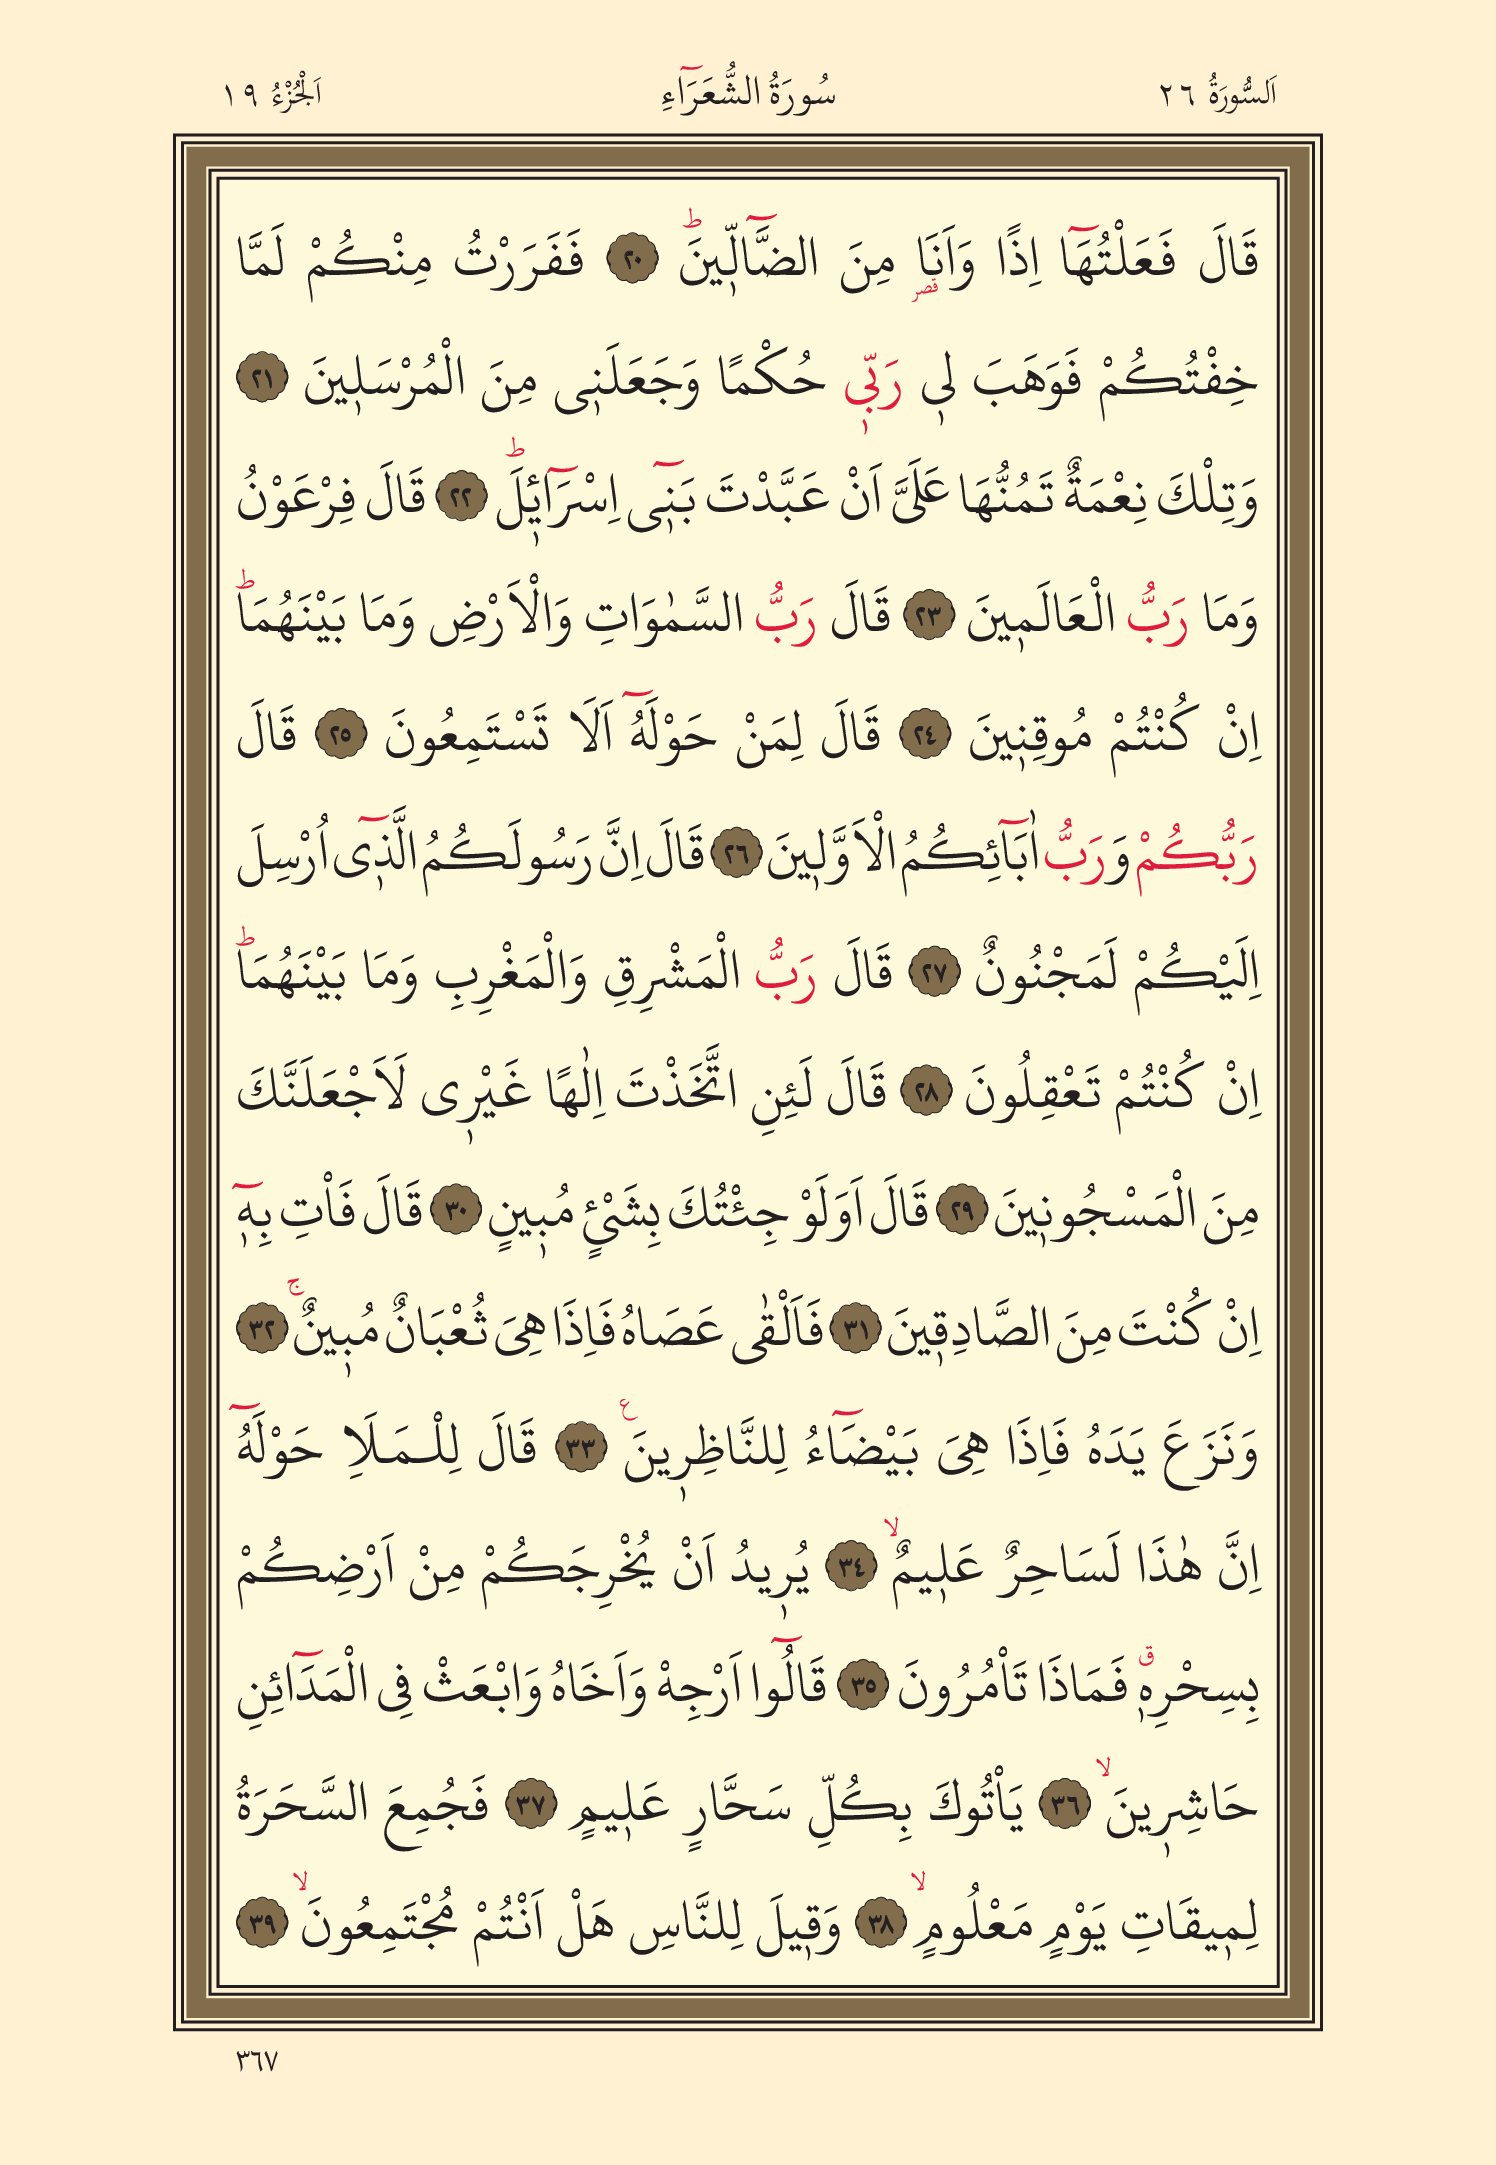 اَلسُّورَةُ ٢٦ سُورَةُ الشُّعَرَٓاءِ اَلْجُزْءُ ١٩
قَالَ فَعَلْتُهَٓا اِذًا وَاَنَا۬ مِنَ الضَّٓالّ۪ينَۜ ﴿٢٠﴾ فَفَرَرْتُ مِنْكُمْ لَمَّا
قصر
خِفْتُكُمْ فَوَهَبَ ل۪ي رَبّ۪ي حُكْمًا وَجَعَلَن۪ى مِنَ الْمُرْسَل۪ينَ ﴿٢١﴾
وَتِلْكَ نِعْمَةٌ تَمُنُّهَا عَلَيَّ اَنْ عَبَّدْتَ بَن۪ٓى اِسْرَٓاء۪يلَۜ ﴿٢٢﴾ قَالَ فِرْعَوْنُ
وَمَا رَبُّ الْعَالَم۪ينَ ﴿٢٣﴾ قَالَ رَبُّ السَّمٰوَاتِ وَالْاَرْضِ وَمَا بَيْنَهُمَاۜ
اِنْ كُنْتُمْ مُوقِن۪ينَ ﴿٢٤﴾ قَالَ لِمَنْ حَوْلَهُٓ اَلَا تَسْتَمِعُونَ ﴿٢٥﴾ قَالَ
رَبُّكُمْ وَرَبُّ اٰبَٓائِكُمُ الْاَوَّل۪ينَ ﴿٢٦﴾ قَالَ اِنَّ رَسُولَكُمُ الَّذ۪ٓى اُرْسِلَ
اِلَيْكُمْ لَمَجْنُونٌ ﴿٢٧﴾ قَالَ رَبُّ الْمَشْرِقِ وَالْمَغْرِبِ وَمَا بَيْنَهُمَاۜ
اِنْ كُنْتُمْ تَعْقِلُونَ ﴿٢٨﴾ قَالَ لَئِنِ اتَّخَذْتَ اِلٰهًا غَيْر۪ى لَاَجْعَلَنَّكَ
مِنَ الْمَسْجُون۪ينَ ﴿٢٩﴾ قَالَ اَوَلَوْ جِئْتُكَ بِشَيْءٍ مُب۪ينٍ ﴿٣٠﴾ قَالَ فَاْتِ بِه۪ٓ
اِنْ كُنْتَ مِنَ الصَّادِق۪ينَ ﴿٣١﴾ فَاَلْقٰى عَصَاهُ فَاِذَا هِيَ ثُعْبَانٌ مُب۪ينٌۚ ﴿٣٢﴾
وَنَزَعَ يَدَهُ فَاِذَا هِيَ بَيْضَٓاءُ لِلنَّاظِر۪ينَ ع ﴿٣٣﴾ قَالَ لِلْمَلَاِ حَوْلَهُٓ
اِنَّ هٰذَا لَسَاحِرٌ عَل۪يمٌۙ ﴿٣٤﴾ يُر۪يدُ اَنْ يُخْرِجَكُمْ مِنْ اَرْضِكُمْ
بِسِحْرِه۪ۗ فَمَاذَا تَاْمُرُونَ ﴿٣٥﴾ قَالُٓوا اَرْجِهْ وَاَخَاهُ وَابْعَثْ فِى الْمَدَٓائِنِ
حَاشِر۪ينَۙ ﴿٣٦﴾ يَاْتُوكَ بِكُلِّ سَحَّارٍ عَل۪يمٍ ﴿٣٧﴾ فَجُمِعَ السَّحَرَةُ
لِم۪يقَاتِ يَوْمٍ مَعْلُومٍۙ ﴿٣٨﴾ وَق۪يلَ لِلنَّاسِ هَلْ اَنْتُمْ مُجْتَمِعُونَۙ ﴿٣٩﴾
٣٦٧